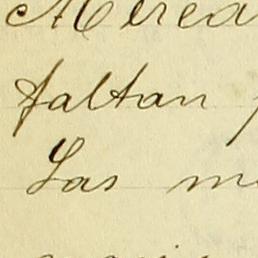 Merca
faltan
Las m